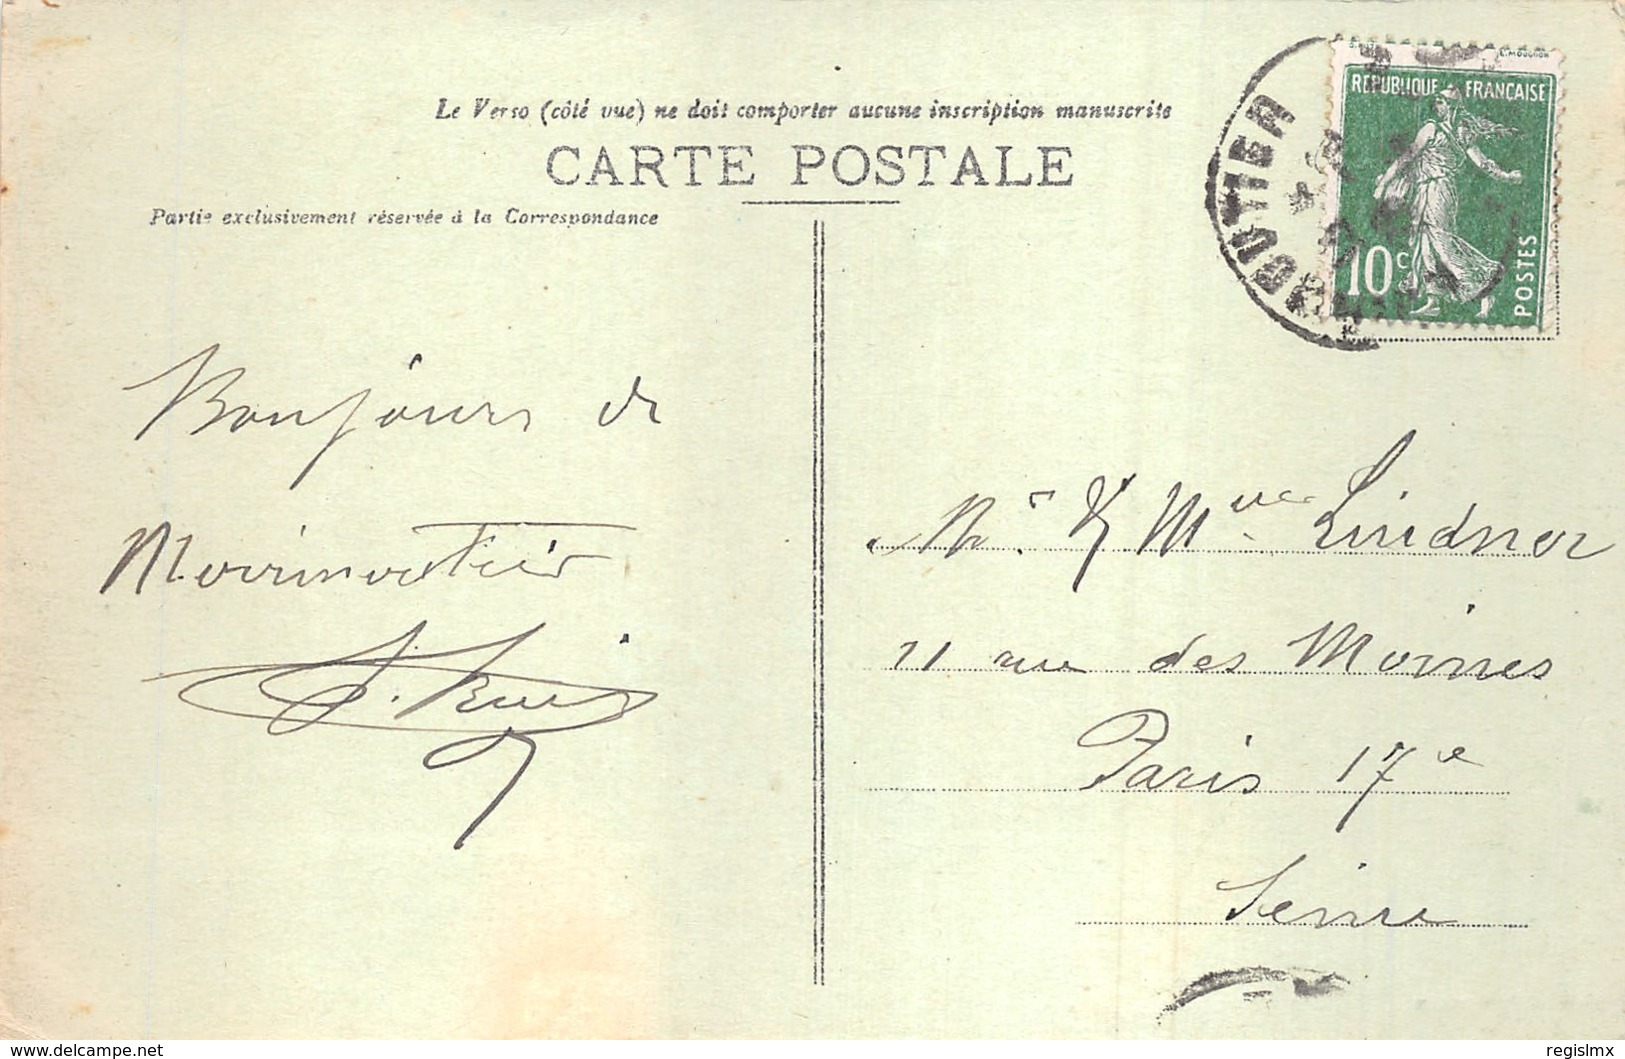 Le Verso (côté vue) ne doit comporter aucune inscription manuscrite
CARTE POSTALE
Partie exclusivement réservée à la Correspondance
RÉPUBLIQUE FRANÇAISE
10c
POSTES
Bonjours de
Marmoutier
Mr & Mme Lindner
11 rue des Moines
Paris 17e
Seine
www.delcampe.net
regislmx